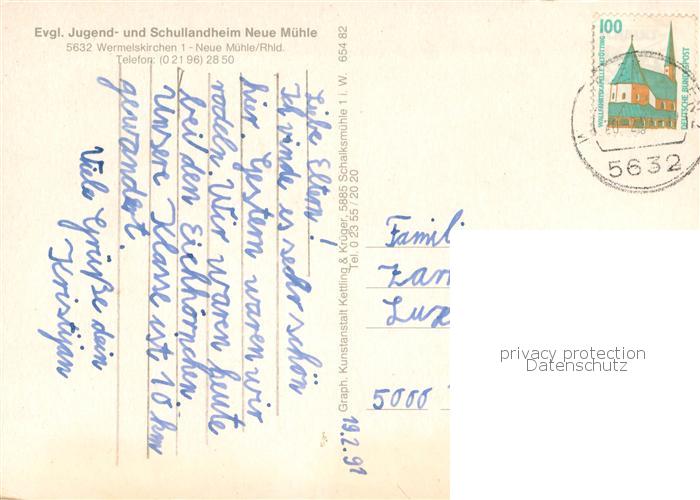 Evgl. Jugend- und Schullandheim Neue Mühle
5632 Wermelskirchen 1 - Neue Mühle/Rhld.
Telefon: (0 21 96) 28 50
Liebe Eltern!
Ich vinde es sehr schön
hier. Gestern waren wir
rodeln. Wir waren heute
bei den Eichhörnchen.
Unsere Klasse ist 10 km
gewandert.
Viele Grüße dein
Kristijan
19.2.91
Graph. Kunstanstalt Kettling & Krüger, 5885 Schalksmühle 1 i. W. 654 82
Tel. 0 23 55 / 20 20
100
WALLFAHRTSKAPELLE ALTÖTTING
DEUTSCHE BUNDESPOST
5632
Famili
Zarr
Luxe
5000
privacy protection
Datenschutz